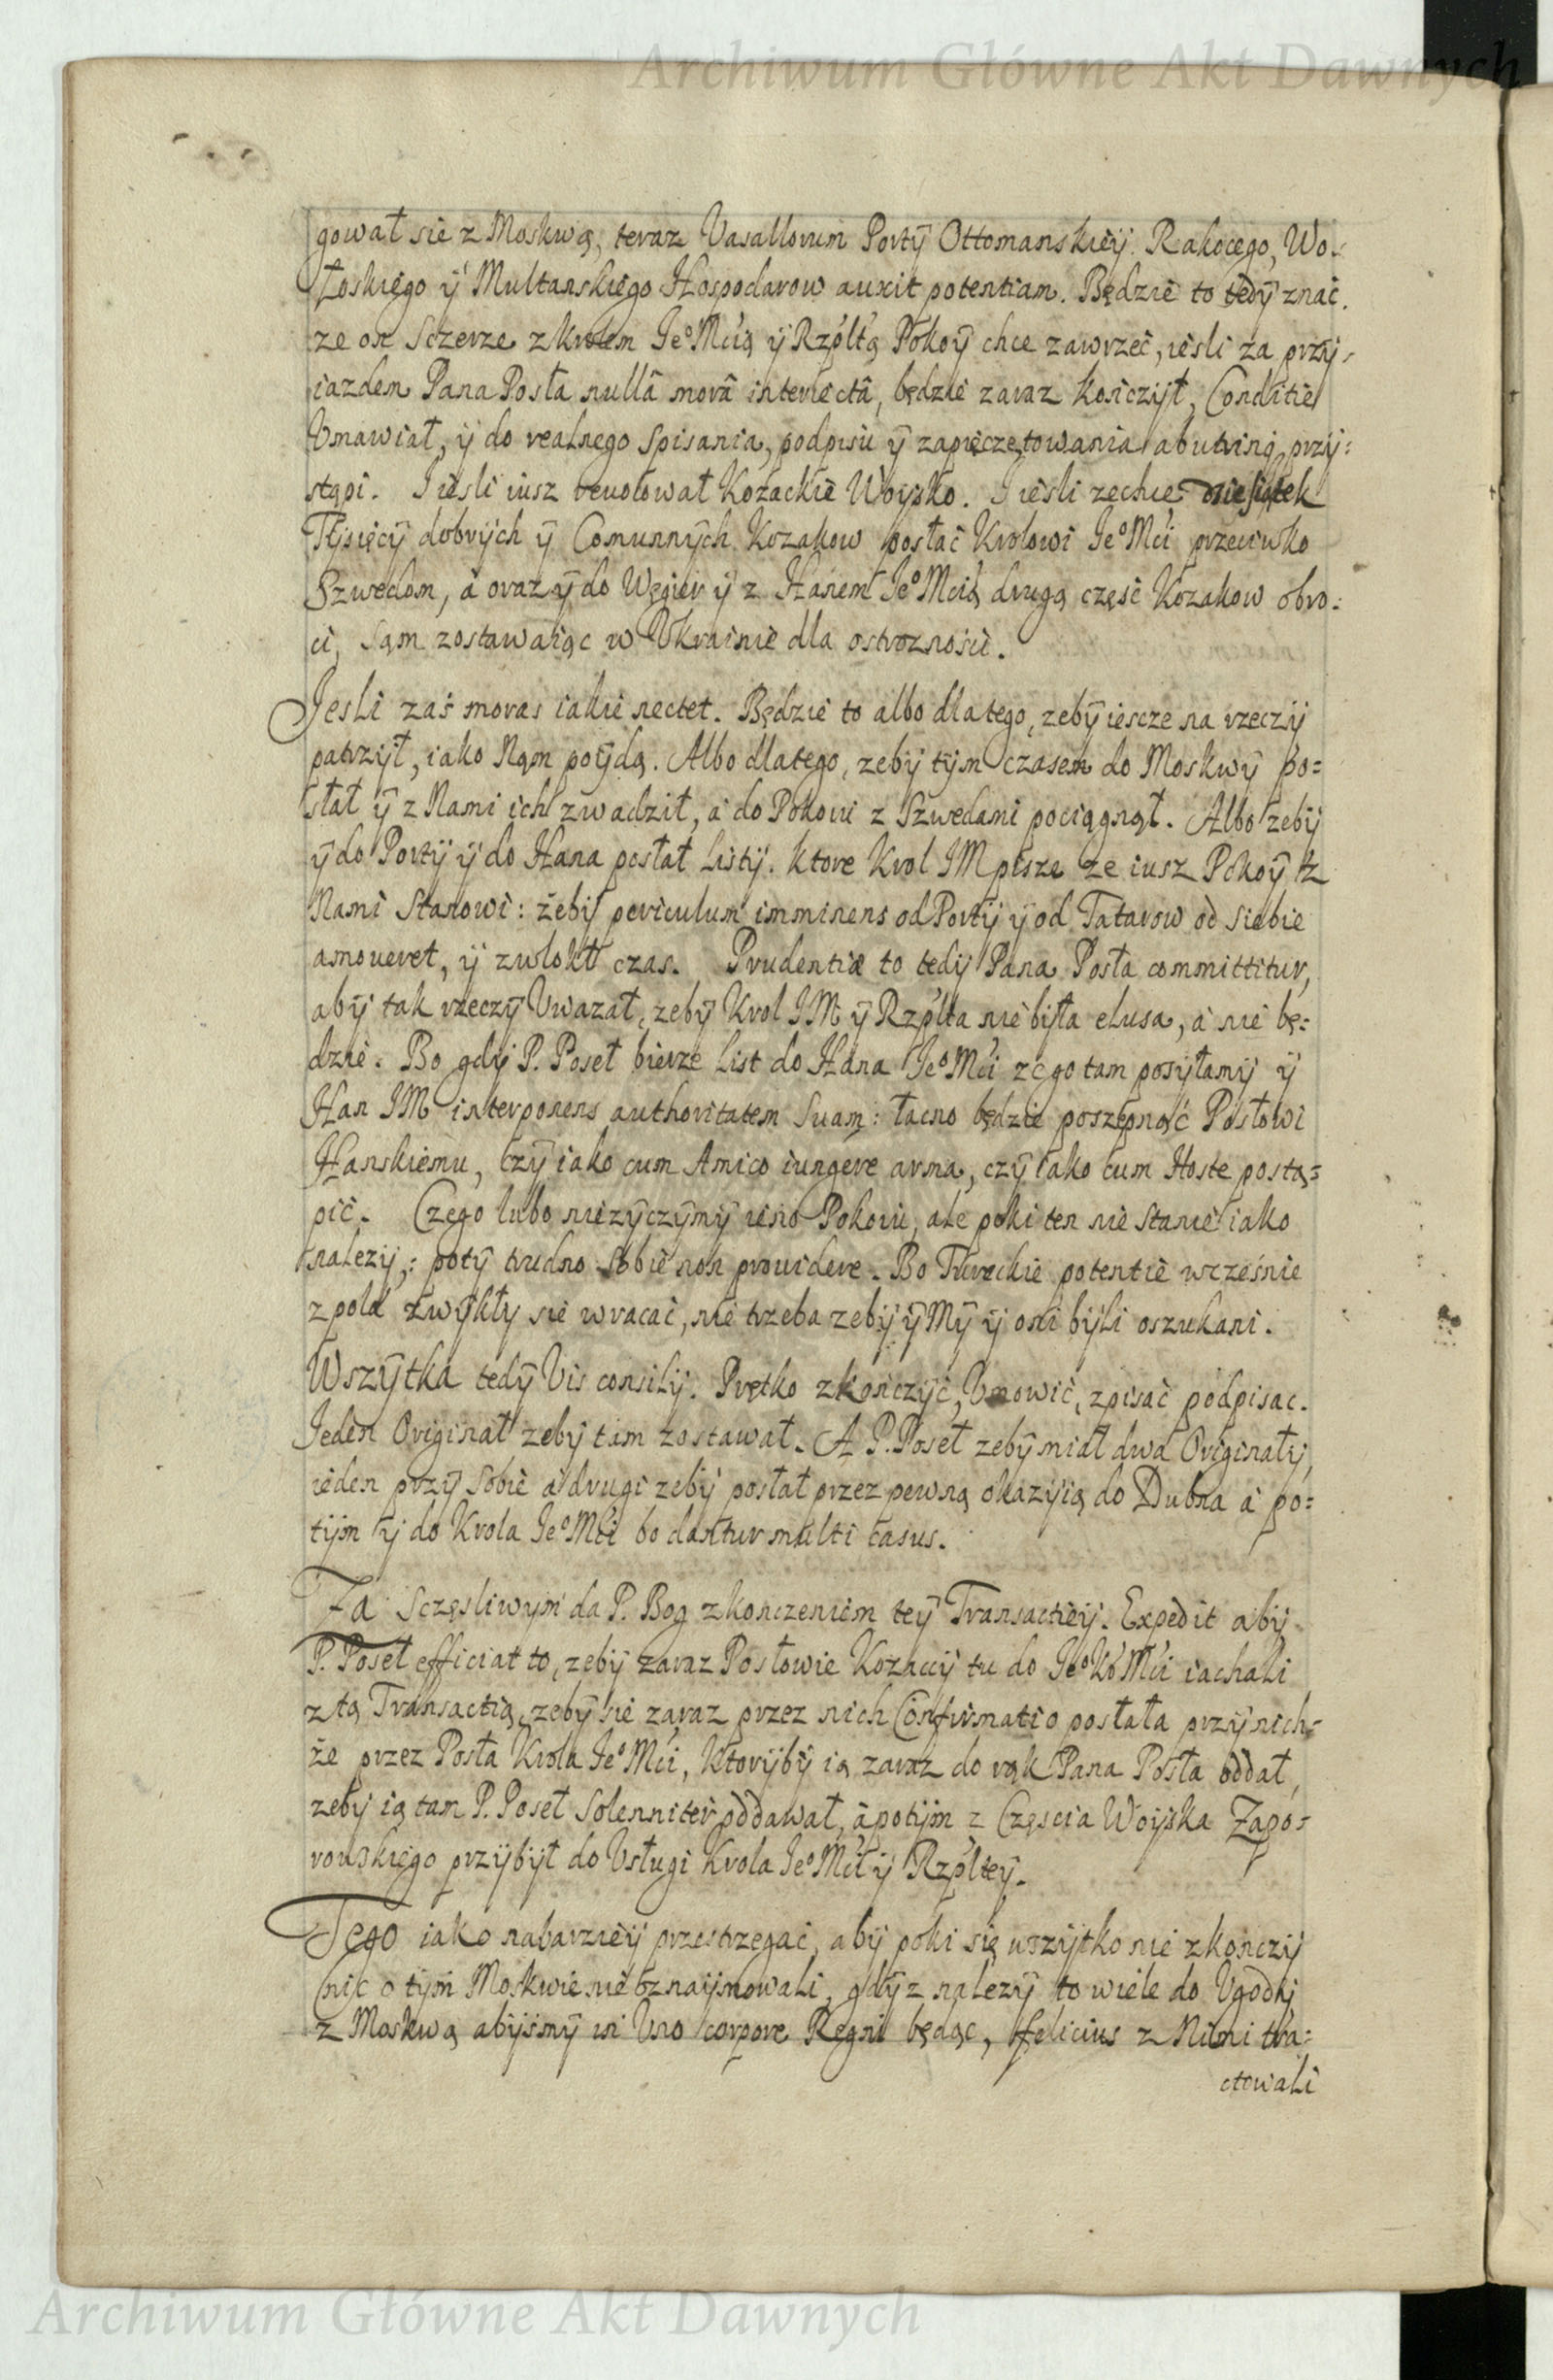 Archiwum Główne Akt Dawnych
gował sie z Moskwą, teraz Vasallorum Portÿ Ottomanskieÿ Rakocego, Wo-
łoskiego ÿ Multanskiego Hospodarow auxit potentiam. Będzie to tedÿ znać.
ze on Sczerze z Krolem Jeo Mcią ÿ Rzpltą Pokoÿ chce zawrzeć, iesli za przÿ-
iazdem Pana Posła nullâ morâ interiectâ, będzie zaraz kończÿł, Conditie
Vmawiał, ÿ do realnego spisania, podpisu ÿ zapieczętowania abutrinq przÿ:
stąpi. J iesli iusz reuołował Kozackie Woÿsko. J iesli zechce dziesiątek
Tÿsięcÿ dobrÿch ÿ Comunnÿch Kozakow posłać Krolowi Jeo Mci przeciwko
Szwedom, à oraz ÿ do Węgier ÿ z Hanem Jeo Mcią drugą część Kozakow obro:
ci, Sąm zostawaiąc w Vkrainie dla ostroznosci.
Jesli zaś moras iakie nectet. Będzie to albo dlatego, zebÿ iescze na rzeczÿ
patrzÿł, iako Nąm poÿdą. Albo dlatego, zebÿ tÿm czasem do Moskwÿ po=
słał ÿ z Nami ich zwadził, à do Pokoiu z Szwedami pociągnął. Albo zebÿ
ÿ do Portÿ ÿ do Hana posłał Listÿ. ktore Krol JM pisze ze iusz Pokoÿ z
Nami Stanowi: żebÿ periculum imminens od Portÿ ÿ od Tatarow od siebie
amoueret, ÿ zwlokł czas. Prudentiæ to tedÿ Pana Posła committitur,
abÿ tak rzeczÿ Vwazał, zebÿ Krol JM ÿ Rzplta nie bÿła elusa, à nie bę:
dzie. Bo gdÿ P. Poseł bierze List do Hana Jeo Mci z ktorego tam posÿłamÿ ÿ
Han JM interponens authoritatem Suam: łacno będzie poszepnąć Posłowi
Hanskiemu, czÿ iako cum Amico iungere arma, czÿ iako cum Hoste postą=
pić. Czego lubo nie zÿczÿmÿ ieno Pokoiu, ale poki ten nie stanie iako
nalezÿ: potÿ trudno Sobie non prouidere. Bo Tureckie potentie wcześnie
z pola zwÿkłÿ sie wracać, nie trzeba zebÿ ÿ Mÿ ÿ oni bÿli oszukani.
Wszÿtka tedÿ Vis consilÿ. Prętko zkończÿć, Vmowić, zpisać podpisac.
Jeden Originał zebÿ tam zostawał. A P. Poseł zebÿ miał dwa Originałÿ,
ieden przÿ Sobie a drugi zebÿ posłał przez pewną okazÿią do Dubna à po=
tÿm ÿ do Krola Jeo Mci bo dantur multi casus.
Za Sczęsliwÿm da P. Bog zkonczeniem teÿ Transactieÿ. Expedit abÿ
P. Poseł efficiat to, zebÿ zaraz Posłowie Kozaccÿ tu do Jeo Kr Mci iachali
z tą Transactią, zebÿ sie zaraz przez nich Confirmatio posłała przÿ nich-
że przez Posła Krola Jeo Mci, ktorÿbÿ ią zaraz do rąk Pana Posła oddał,
zebÿ ią tam P. Poseł Solenniter oddawał, à potÿm z Częścia Woÿska Zapo-
rouskiego przÿbÿł do Vsługi Krola Jeo Mci ÿ Rzplteÿ.
Tego iako nabarzieÿ przestrzegać, abÿ poki się wszÿtko nie zkończÿ
nic o tÿm Moskwie nie oznaÿmowali, gdÿz nalezÿ to wiele do Vgodÿ
z Moskwą abÿsmÿ in Vno corpore Regni będąc, felicius z Nimi tra=
ctowali
Archiwum Główne Akt Dawnych